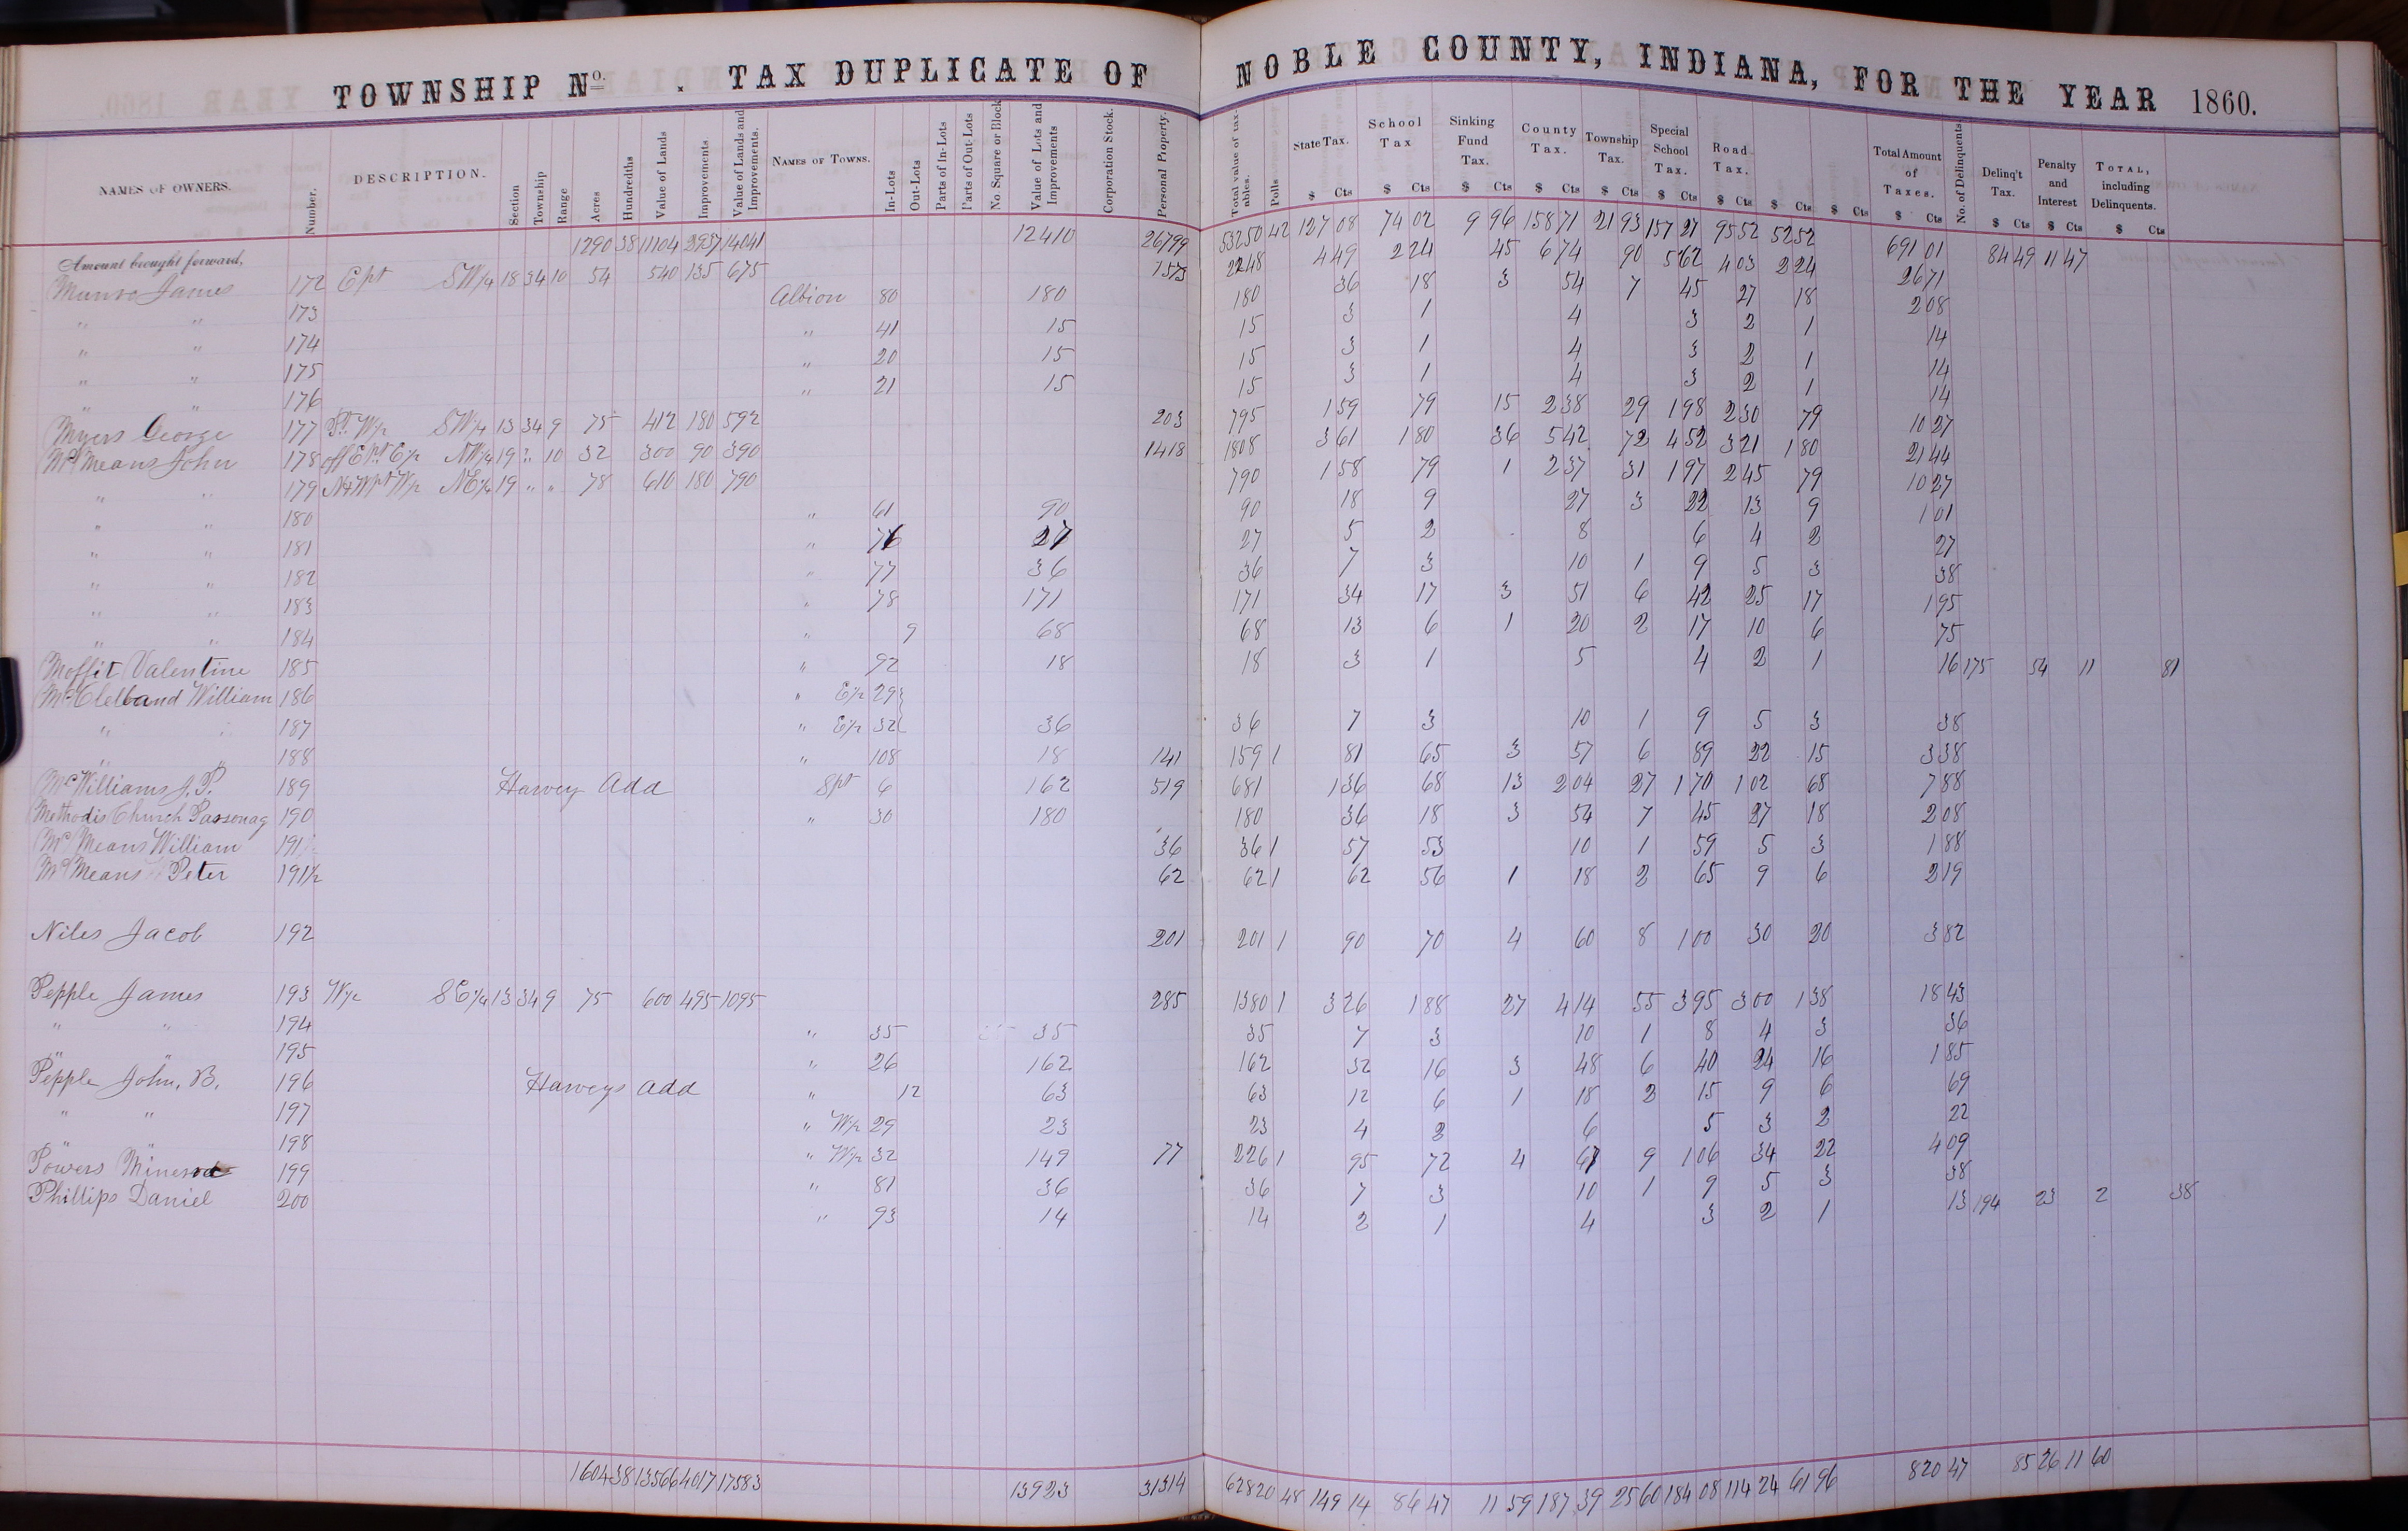 TOWNSHIP No. . TAX DUPLICATE OF NOBLE COUNTY, INDIANA, FOR THE YEAR 1860.
NAMES OF OWNERS. Number. DESCRIPTION. Section Township Range Acres Hundredths Value of Lands Improvements Value of Lands and Improvements. NAMES OF TOWNS. In-Lots Out-Lots Parts of In-Lots Parts of Out-Lots No Square or Block Value of Lots and Improvements Corporation Stock. Personal Property. Total value of taxables. Polls State Tax. School Tax Sinking Fund Tax. County Tax. Township Tax. Special School Tax. Road Tax. Total Amount of Taxes. No. of Delinquents Delinq't Tax. Penalty and Interest TOTAL, including Delinquents.
$ Cts $ Cts $ Cts $ Cts $ Cts $ Cts $ Cts $ Cts $ Cts $ Cts $ Cts $ Cts $ Cts
Amount brought forward, 1290 38 11104 2937 14041 12410 26799 53250 42 127 08 74 02 9 96 158 71 21 93 157 27 95 52 52 52 691 01 84 49 11 47
Munro James 172 E pt SW/4 18 34 10 54 540 135 675 1573 2248 4 49 2 24 45 6 74 90 5 62 4 03 2 24 26 71
" " 173 Albion 80 180 180 36 18 3 54 7 45 27 18 2 08
" " 174 " 41 15 15 3 1 4 3 2 1 14
" " 175 " 20 15 15 3 1 4 3 2 1 14
" " 176 " 21 15 15 3 1 4 3 2 1 14
Myers George 177 W/2 SW/4 13 34 9 75 412 180 592 203 795 1 59 79 15 2 38 29 1 98 2 30 79 10 27
McMeans John 178 off E pt E/2 NW/4 19 " 10 32 300 90 390 1418 1808 3 61 1 80 36 5 42 72 4 52 3 21 1 80 21 44
" " 179 W/2 NE/4 19 " " 78 610 180 790 790 1 58 79 1 2 37 31 1 97 2 45 79 10 27
" " 180 " 61 90 90 18 9 27 3 22 13 9 1 01
" " 181 " 76 27 27 5 2 8 6 4 2 27
" " 182 " 77 36 36 7 3 10 1 9 5 3 38
" " 183 " 78 171 171 34 17 3 51 6 42 25 17 1 95
" " 184 " 9 68 68 13 6 1 20 2 17 10 6 75
Moffit Valentine 185 " 92 18 18 3 1 5 4 2 1 16 175 54 11 81
McClelland William 186 " E/2 29
" " 187 " E/2 32 36 36 7 3 10 1 9 5 3 38
" " 188 " 108 18 141 159 1 81 65 3 57 6 89 22 15 3 38
McWilliams J. P. 189 Harvey Add S pt 6 162 519 681 1 36 68 13 2 04 27 1 70 1 02 68 7 88
Methodis Church Parsonag 190 " 30 180 180 36 18 3 54 7 45 27 18 2 08
McMeans William 191 36 36 1 57 53 10 1 59 5 3 1 88
McMeans Peter 191½ 62 62 1 62 56 1 18 2 65 9 6 2 19
Niles Jacob 192 201 201 1 90 70 4 60 8 1 00 30 20 3 82
Pepple James 193 W/2 SE/4 13 34 9 75 600 495 1095 285 1380 1 3 26 1 88 27 4 14 55 3 95 3 00 1 38 18 43
" " 194 " 35 35 35 7 3 10 1 8 4 3 36
" " 195 " 26 162 162 32 16 3 48 6 40 24 16 1 85
Pepple John. B. 196 Harveys Add " 12 63 63 12 6 1 18 2 15 9 6 69
" " 197 " W/2 29 23 23 4 2 6 5 3 2 22
" " 198 " W/2 32 149 77 226 1 95 72 4 67 9 1 06 34 22 4 09
Powers Minerva 199 " 81 36 36 7 3 10 1 9 5 3 38
Phillips Daniel 200 " 93 14 14 2 1 4 3 2 1 13 194 23 2 38
1604 38 13566 4017 17583 13923 31314 62820 48 149 14 86 47 11 59 187 39 25 60 184 08 114 24 61 96 820 47 85 26 11 60